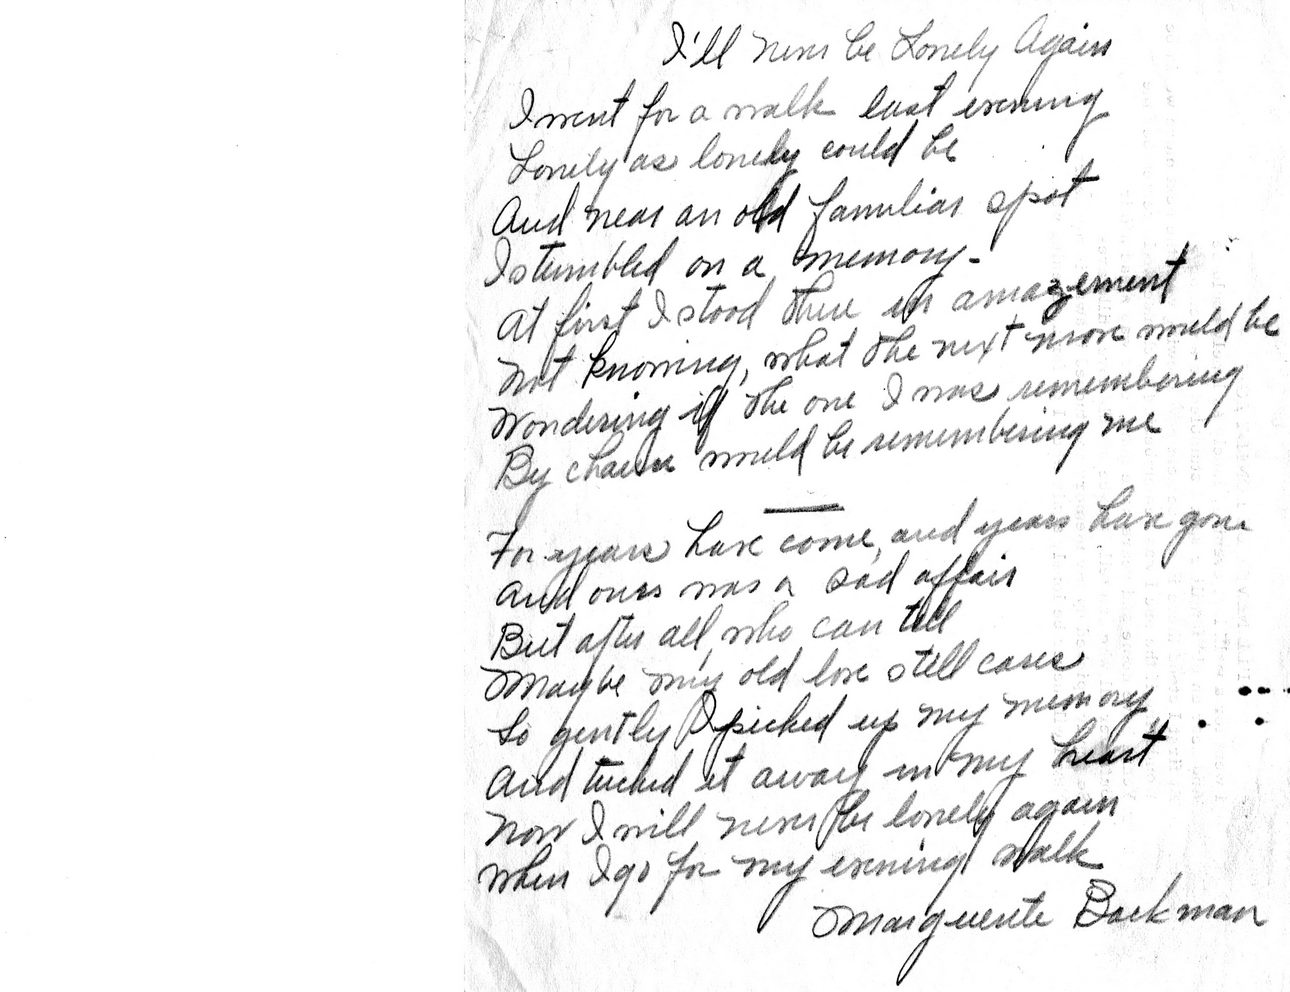 I'll never be Lonely Again
I went for a walk last evening
Lonely as lonely could be
And near an old familiar spot
I stumbled on a memory-
At first I stood there in amazement
Not knowing, what the next move would be
Wondering if the one I was remembering
By chance would be remembering me
For years have come, and years have gone
And ours was a sad affair
But after all, who can tell
Maybe my old love still cares
So gently I picked up my memory
And tucked it away in my heart
Now I will never be lonely again
When I go for my evening walk
Marguerite Backman